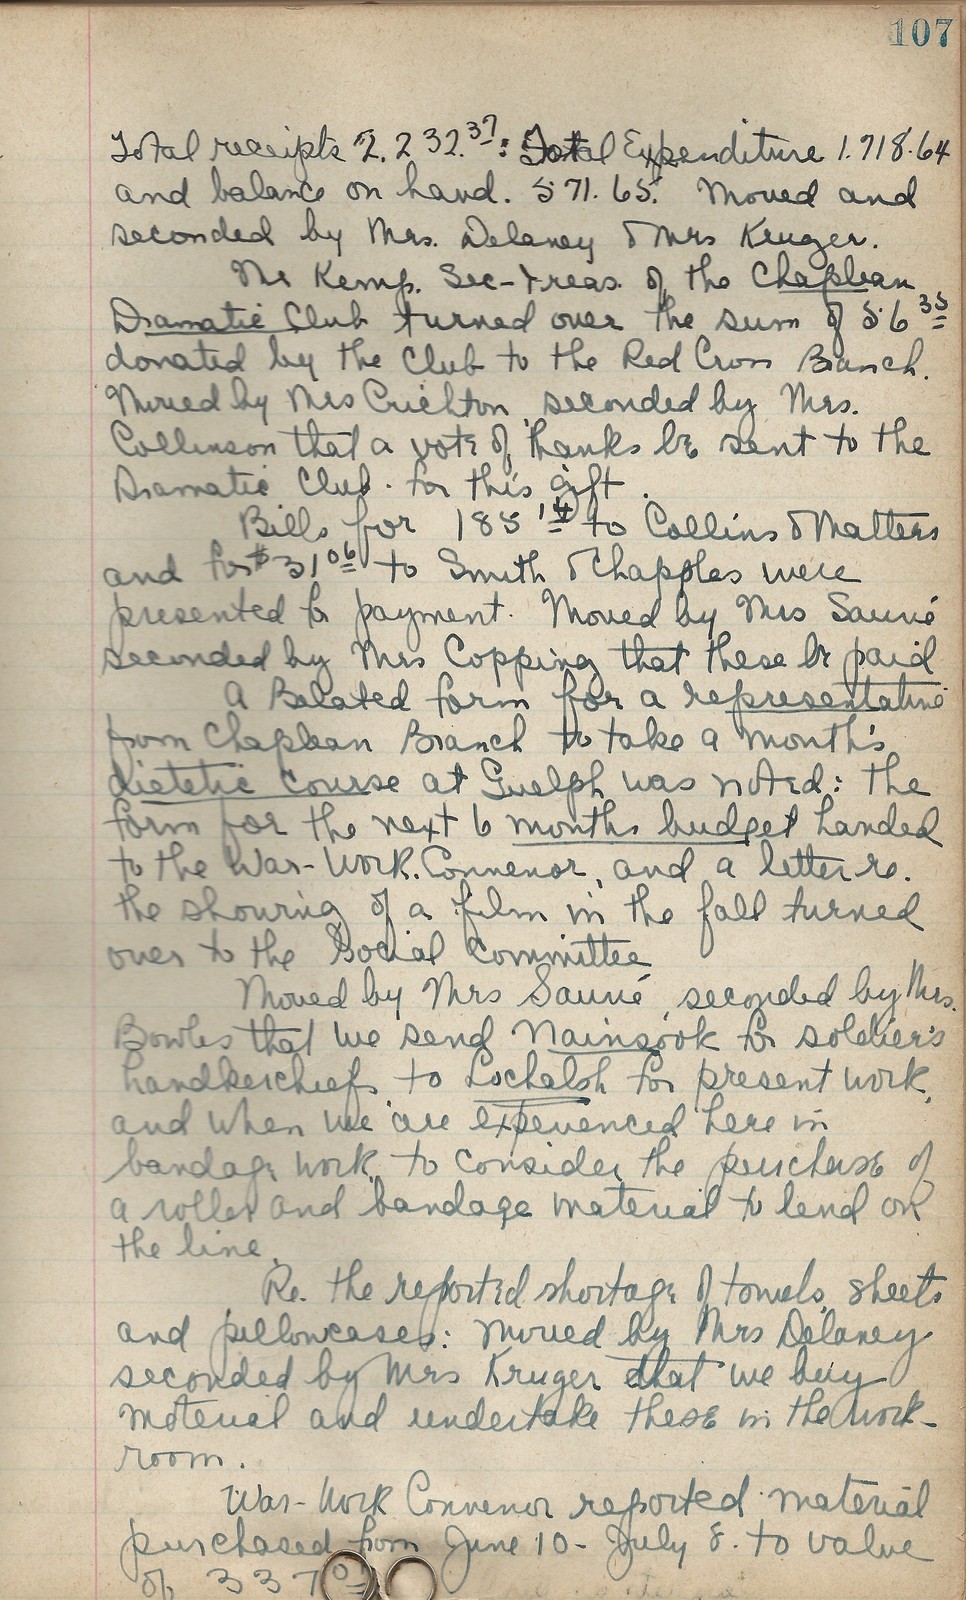 107
Total receipts 2,232.37: Total Expenditure 1.718.64
and balance on hand. 571.65. Moved and
seconded by Mrs. Delaney & Mrs Kruger.
Mr Kemp. Sec-Treas. of the Chapleau
Dramatic Club turned over the sum of 56 35
donated by the Club to the Red Cross Branch.
Moved by Mrs Crichton, seconded by Mrs.
Collinson that a vote of thanks be sent to the
Dramatic Club. for this gift.
Bills for 185 14 to Collins & Matters
and for $31 06 to Smith & Chapples were
presented for payment. Moved by Mrs Sauvé
seconded by Mrs Copping that these be paid
A Belated form for a representative
from Chapleau Branch to take a month's
dietetic course at Guelph was noted: the
form for the next 6 months budget handed
to the War-Work. Convenor, and a letter re.
the showing of a film in the fall turned
over to the Social Committee
Moved by Mrs Sauvé, seconded by Mrs.
Bowles that we send Nainsook for soldier's
handkerchiefs to Lochalsh for present work,
and when we are experienced here in
bandage work, to consider the purchase of
a roller and bandage material to lend on
the line.
Re. the reported shortage of towels, sheets
and pillowcases: Moved by Mrs Delaney
seconded by Mrs Kruger that we buy
material and undertake these in the work-
room.
War-Work Convenor reported material
purchased from June 10 - July 8. to value
of 337